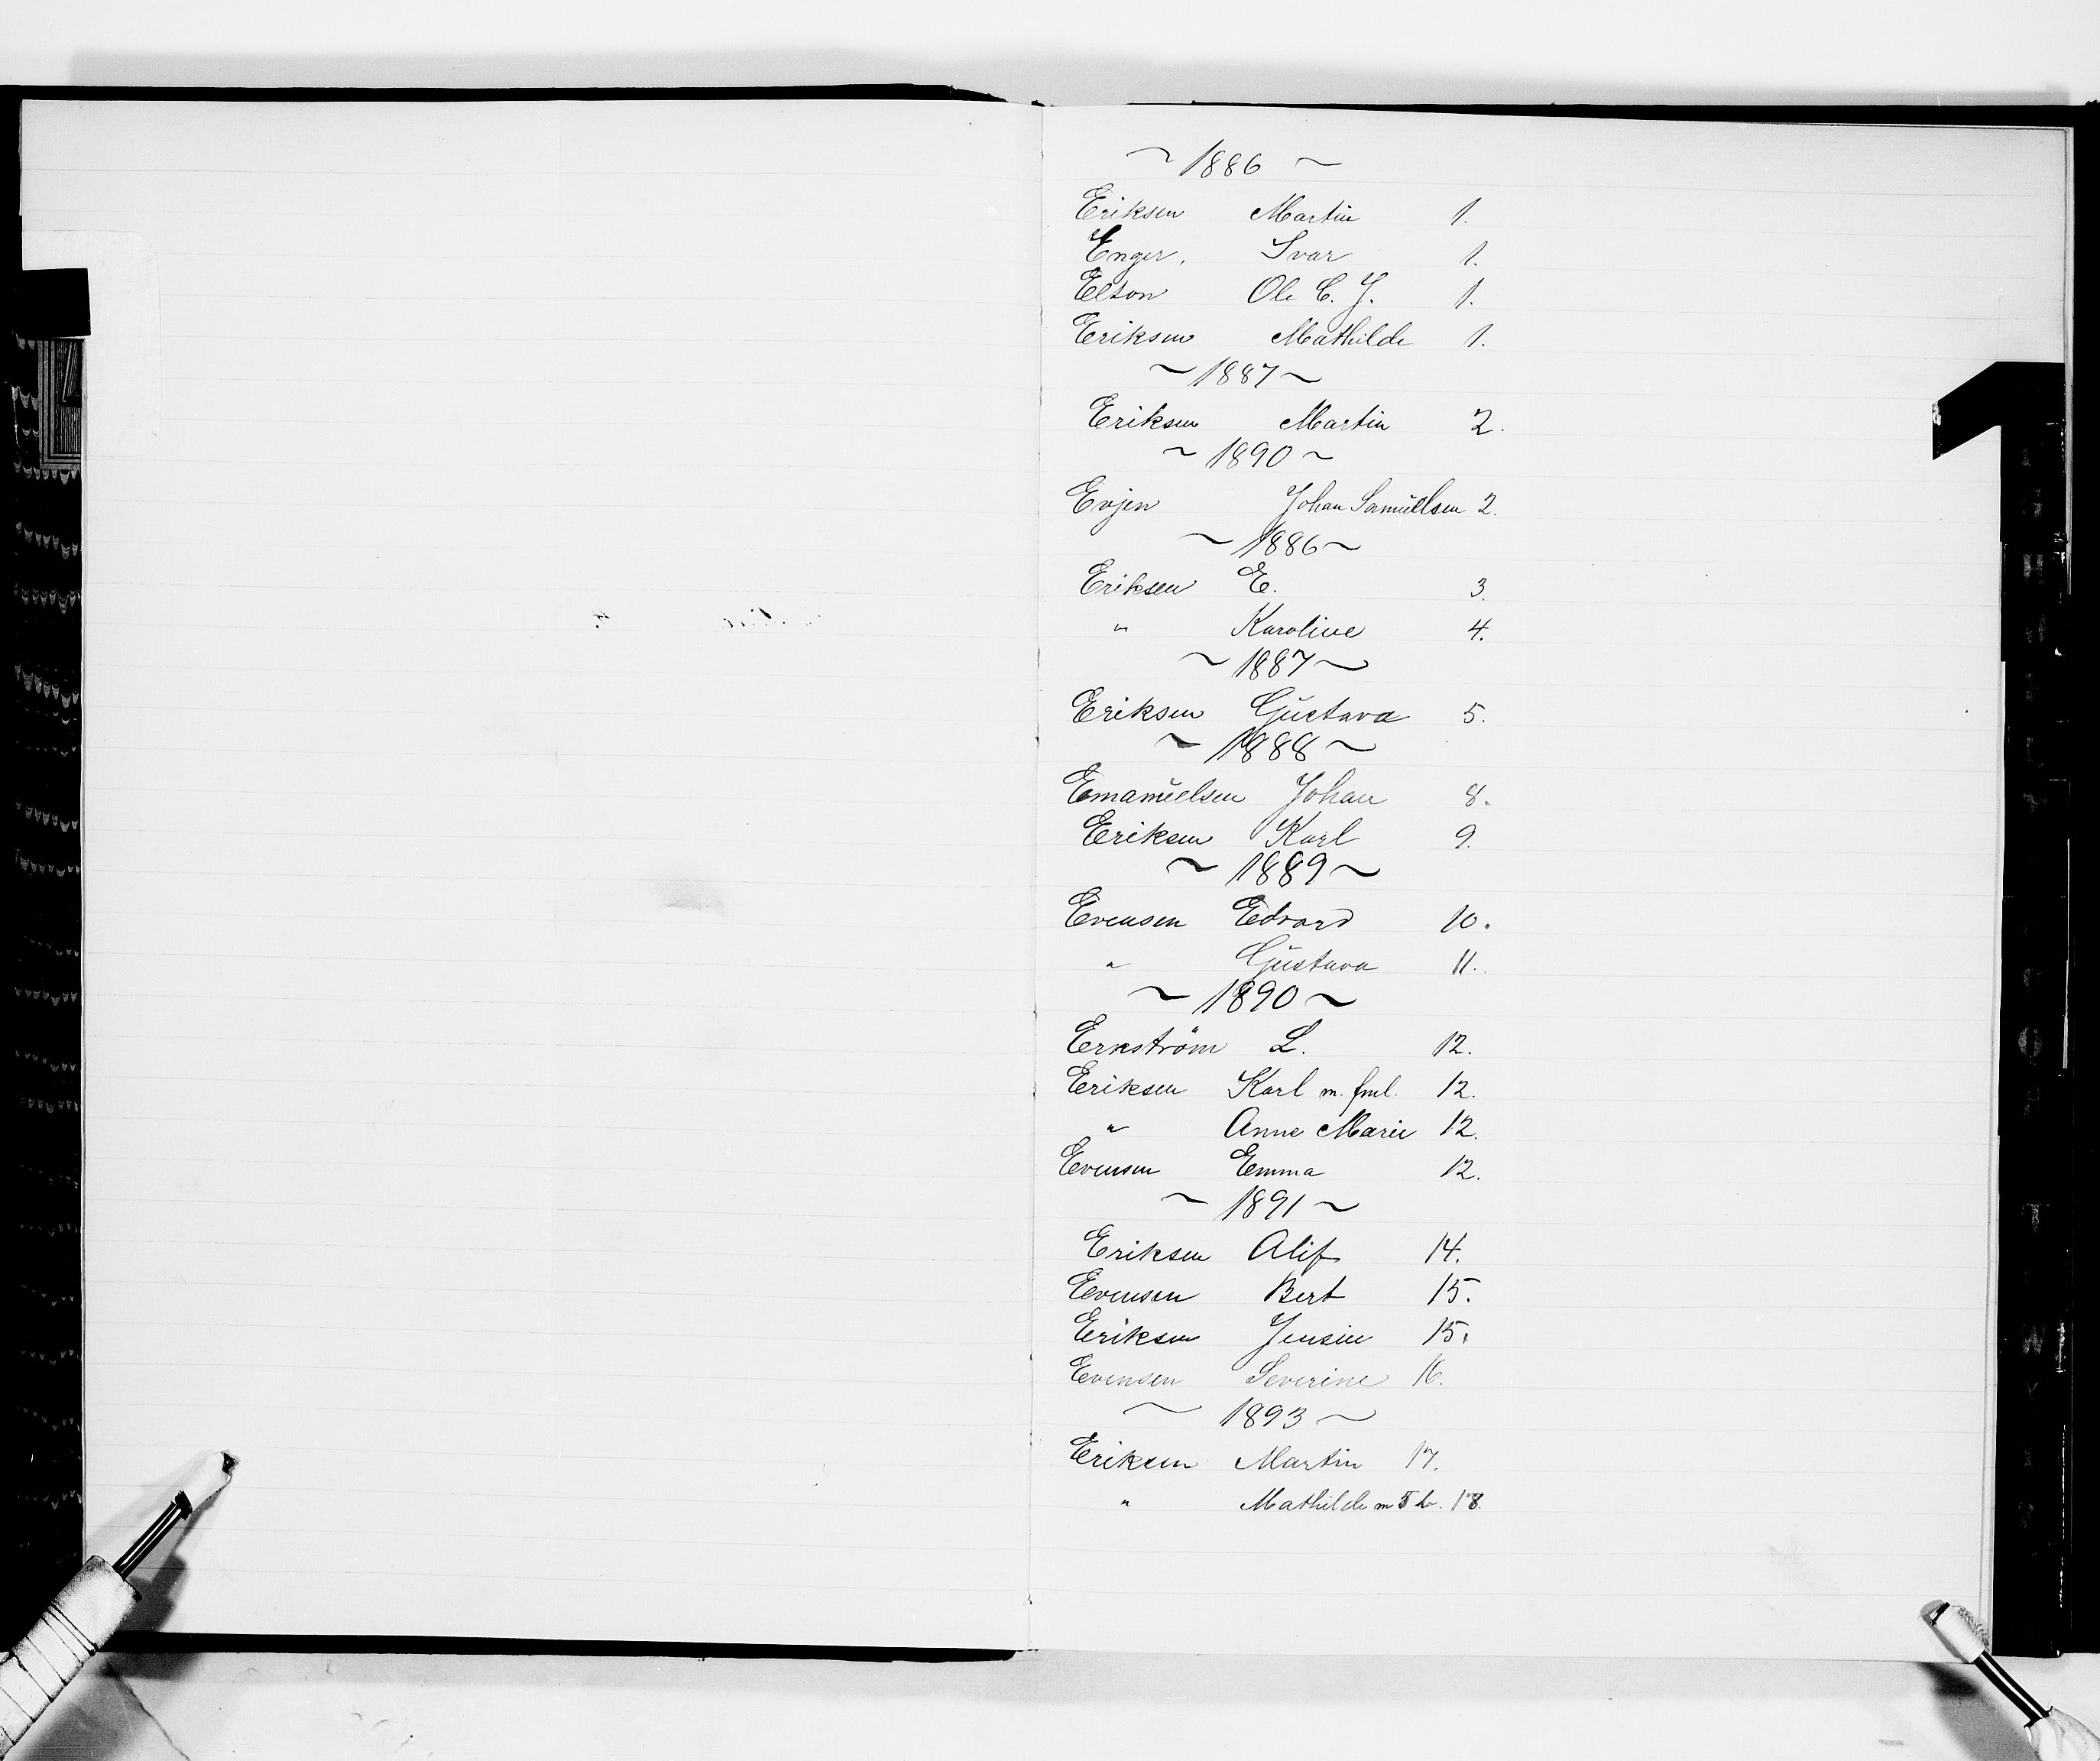 ~ 1886 ~
Eriksen Martin 1.
Enger. Ivar 1.
Elton Ole C. J. 1.
Eriksen Mathilde 1.
~ 1887 ~
Eriksen Martin 2.
~ 1890 ~
Evjen Johan Samuelsen 2.
~ 1886 ~
Eriksen E. 3.
" Karoline 4.
~ 1887 ~
Eriksen Gustava 5.
~ 1888 ~
Emanuelsen Johan 8.
Eriksen Karl 9.
~ 1889 ~
Evensen Edvard 10.
" Gustava 11.
~ 1890 ~
Erkström L. 12.
Eriksen Karl m. fml. 12.
" Anne Marie 12.
Evensen Emma 12.
~ 1891 ~
Eriksen Alif 14.
Evensen Bert 15.
Eriksen Jensine 15.
Evensen Severine 16.
~ 1893 ~
Eriksen Martin 17.
" Mathilde m 5 b. 18.